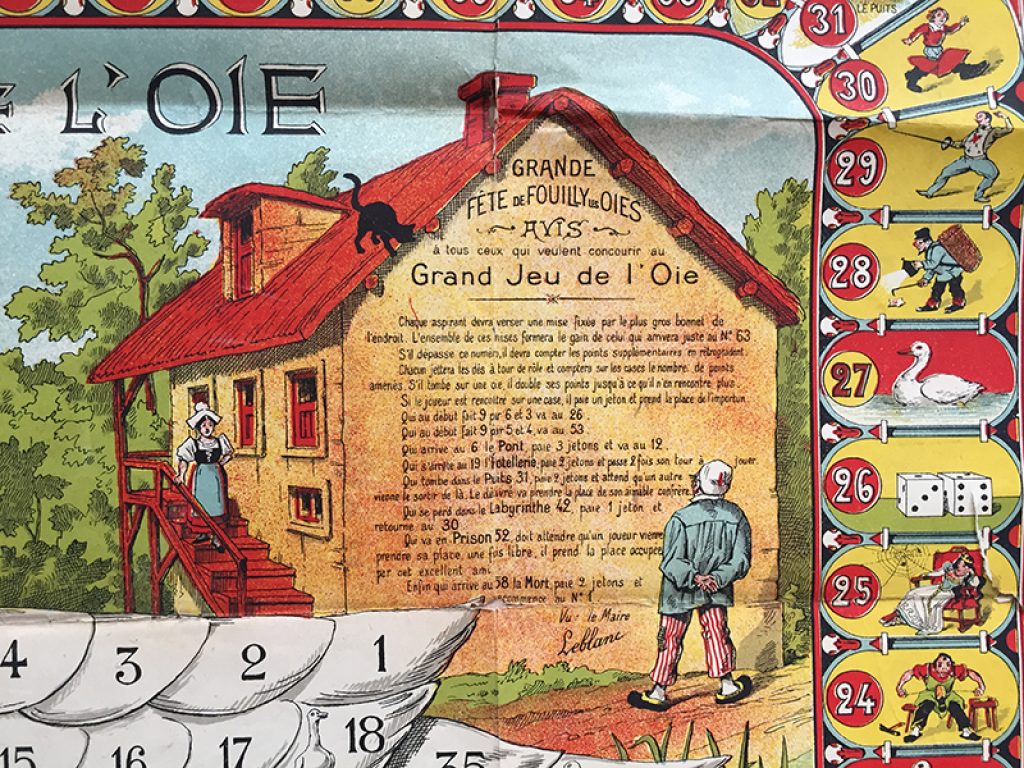 L'OIE
GRANDE
FÊTE DE FOUILLY LES OIES
AVIS
à tous ceux qui veulent concourir au
Grand Jeu de l'Oie
Chaque aspirant devra verser une mise fixée par le plus gros bonnet de
l'endroit. L'ensemble de ces mises formera le gain de celui qui arrivera juste au N° 63
S'il dépasse ce numéro, il devra compter les points supplémentaires en rétrogradant.
Chacun jettera les dés à tour de rôle et comptera sur les cases le nombre de points
amenés. S'il tombe sur une oie, il double ses points jusqu'à ce qu'il n'en rencontre plus.
Si le joueur est rencontré sur une case, il paie un jeton et prend la place de l'importun.
Qui au début fait 9 par 6 et 3 va au 26.
Qui au début fait 9 par 5 et 4, va au 53.
Qui arrive au 6 le Pont, paie 3 jetons et va au 12.
Qui s'arrête au 19 l'Hotellerie, paie 2 jetons et passe 2 fois son tour à jouer.
Qui tombe dans le Puits 31, paie 2 jetons et attend qu'un autre
vienne le sortir de là. Le pauvre va prendre la place de son aimable confrère
Qui se perd dans le Labyrinthe 42, paie 1 jeton et
retourne au 30
Qui va en Prison 52, doit attendre qu'un joueur vienne
prendre sa place, une fois libre, il prend la place occupée
par cet excellent ami
Enfin qui arrive au 58 la Mort, paie 2 jetons et
recommence au N° 1
Vu: le Maire
Leblanc
31
LE PUITS
30
29
28
27
26
25
24
4 3 2 1
15 16 17 18
35